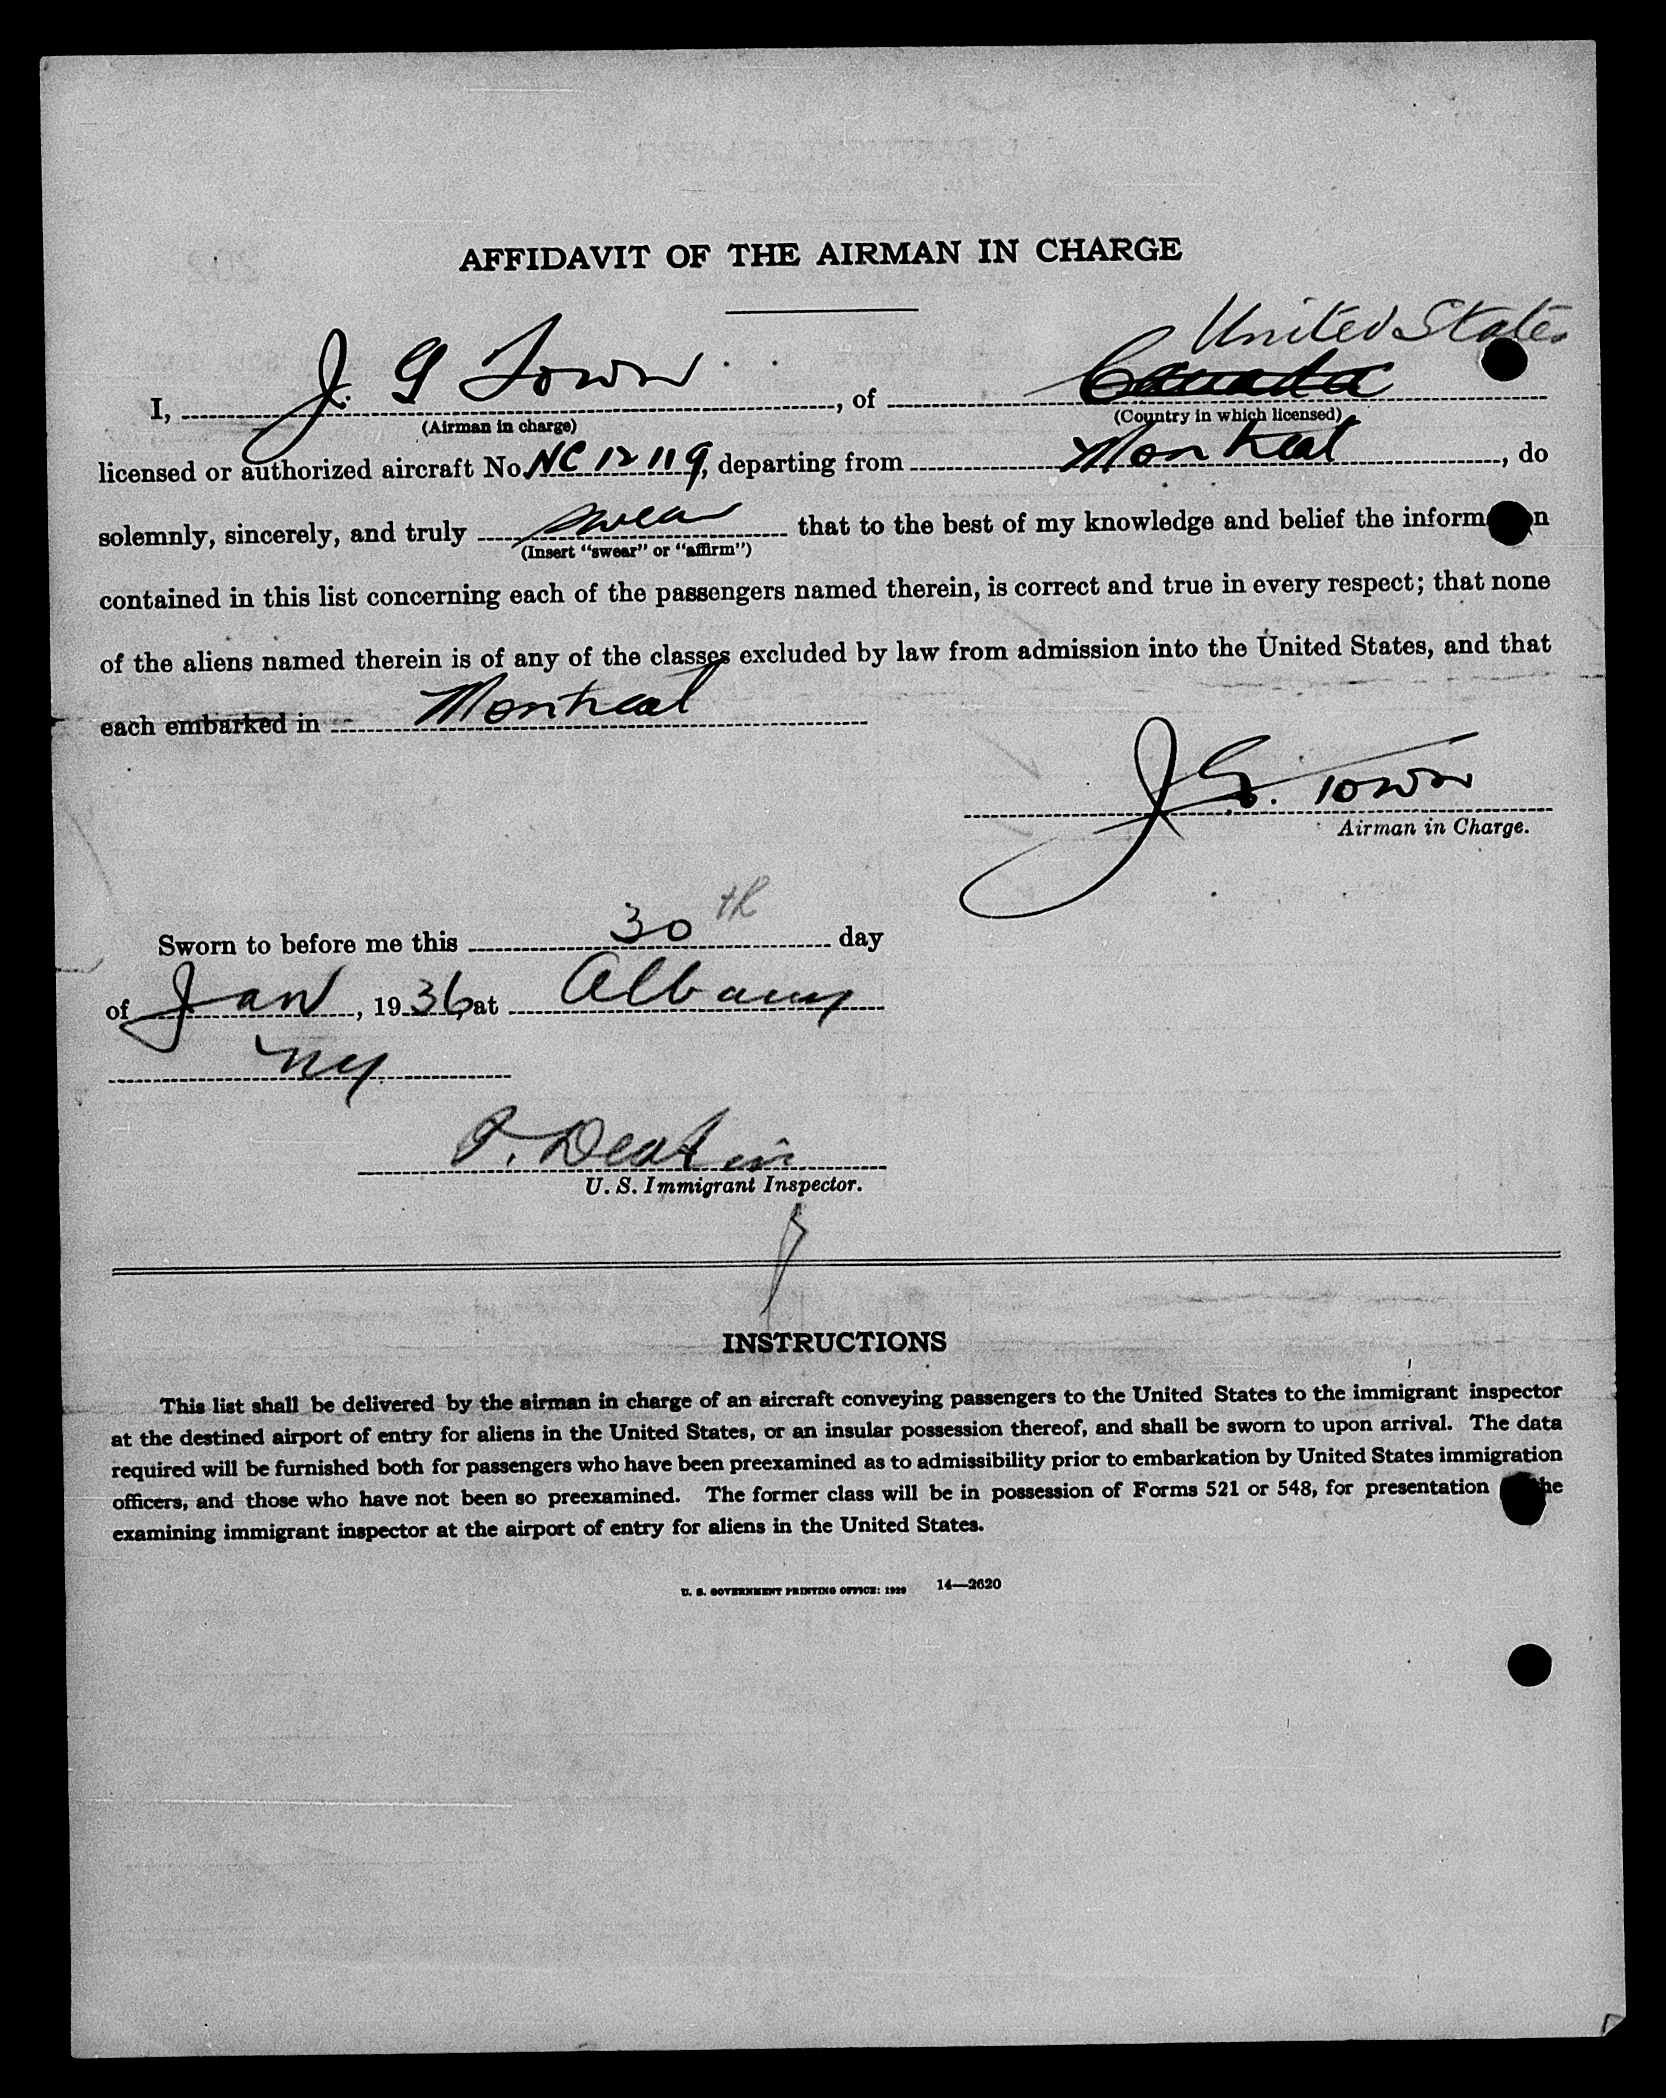 AFFIDAVIT OF THE AIRMAN IN CHARGE
United States
I, J. G Town, of Canada
(Airman in charge) (Country in which licensed)
licensed or authorized aircraft No. NC 12119, departing from Montreal, do
solemnly, sincerely, and truly swear that to the best of my knowledge and belief the inform n
(Insert "swear" or "affirm")
contained in this list concerning each of the passengers named therein, is correct and true in every respect; that none
of the aliens named therein is of any of the classes excluded by law from admission into the United States, and that
each embarked in Montreal
J G. Town
Airman in Charge.
Sworn to before me this 30th day
of Jan, 1936, at Albany
NY
U. S. Immigrant Inspector.
INSTRUCTIONS
This list shall be delivered by the airman in charge of an aircraft conveying passengers to the United States to the immigrant inspector
at the destined airport of entry for aliens in the United States, or an insular possession thereof, and shall be sworn to upon arrival. The data
required will be furnished both for passengers who have been preexamined as to admissibility prior to embarkation by United States immigration
officers, and those who have not been so preexamined. The former class will be in possession of Forms 521 or 548, for presentation he
examining immigrant inspector at the airport of entry for aliens in the United States.
U. S. GOVERNMENT PRINTING OFFICE: 1929 14—2620